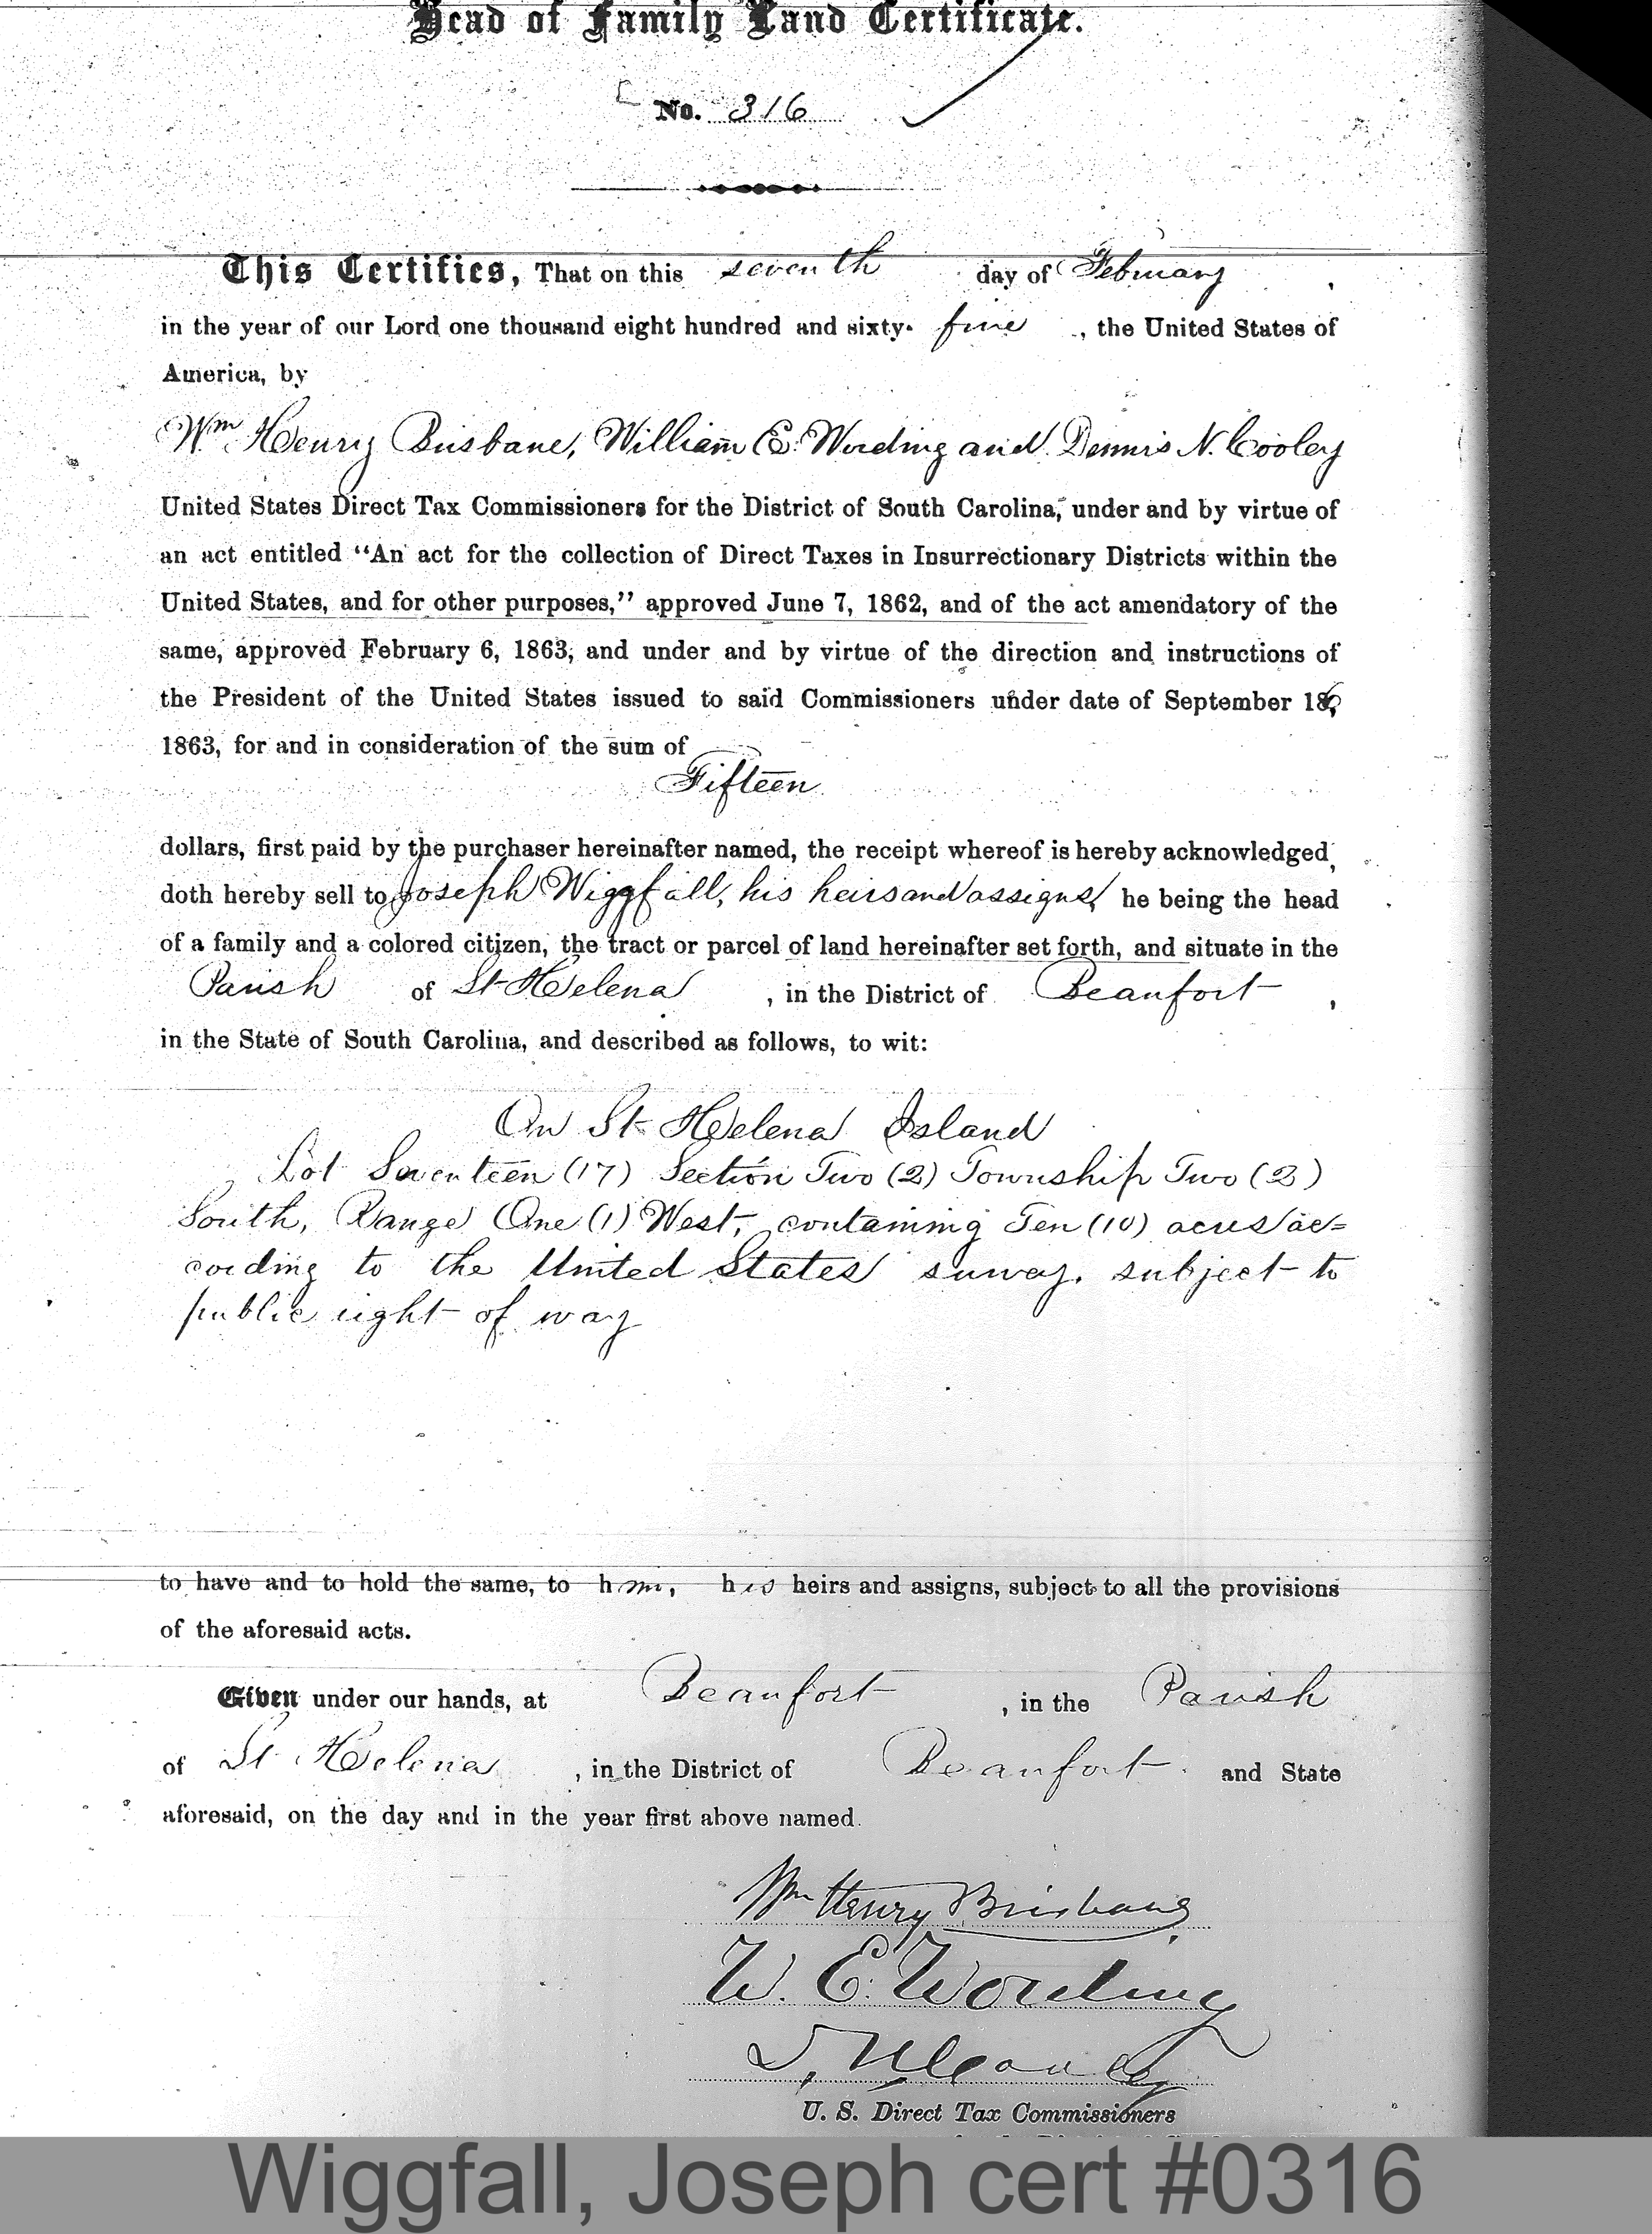 Head of Family Land Certificate.
No. 316
This Certifies, That on this seventh day of February,
in the year of our Lord one thousand eight hundred and sixty-five, the United States of
America, by
Wm Henry Brisbane, William E. Wording and Dennis N. Cooley
United States Direct Tax Commissioners for the District of South Carolina, under and by virtue of
an act entitled "An act for the collection of Direct Taxes in Insurrectionary Districts within the
United States, and for other purposes," approved June 7, 1862, and of the act amendatory of the
same, approved February 6, 1863, and under and by virtue of the direction and instructions of
the President of the United States issued to said Commissioners under date of September 16,
1863, for and in consideration of the sum of
Fifteen
dollars, first paid by the purchaser hereinafter named, the receipt whereof is hereby acknowledged,
doth hereby sell to Joseph Wiggfall, his heirs and assigns, he being the head
of a family and a colored citizen, the tract or parcel of land hereinafter set forth, and situate in the
Parish of St Helena, in the District of Beaufort,
in the State of South Carolina, and described as follows, to wit:
On St Helena Island
Lot Seventeen (17) Section Two (2) Township Two (2)
South, Range One (1) West, containing Ten (10) acres ac=
cording to the United States survey. subject to
public right of way
to have and to hold the same, to him, his heirs and assigns, subject to all the provisions
of the aforesaid acts.
Given under our hands, at Beaufort, in the Parish
of St Helena, in the District of Beaufort and State
aforesaid, on the day and in the year first above named.
Wm Henry Brisbane
W. E. Wording
D. N. Cooley
U. S. Direct Tax Commissioners
Wiggfall, Joseph cert #0316